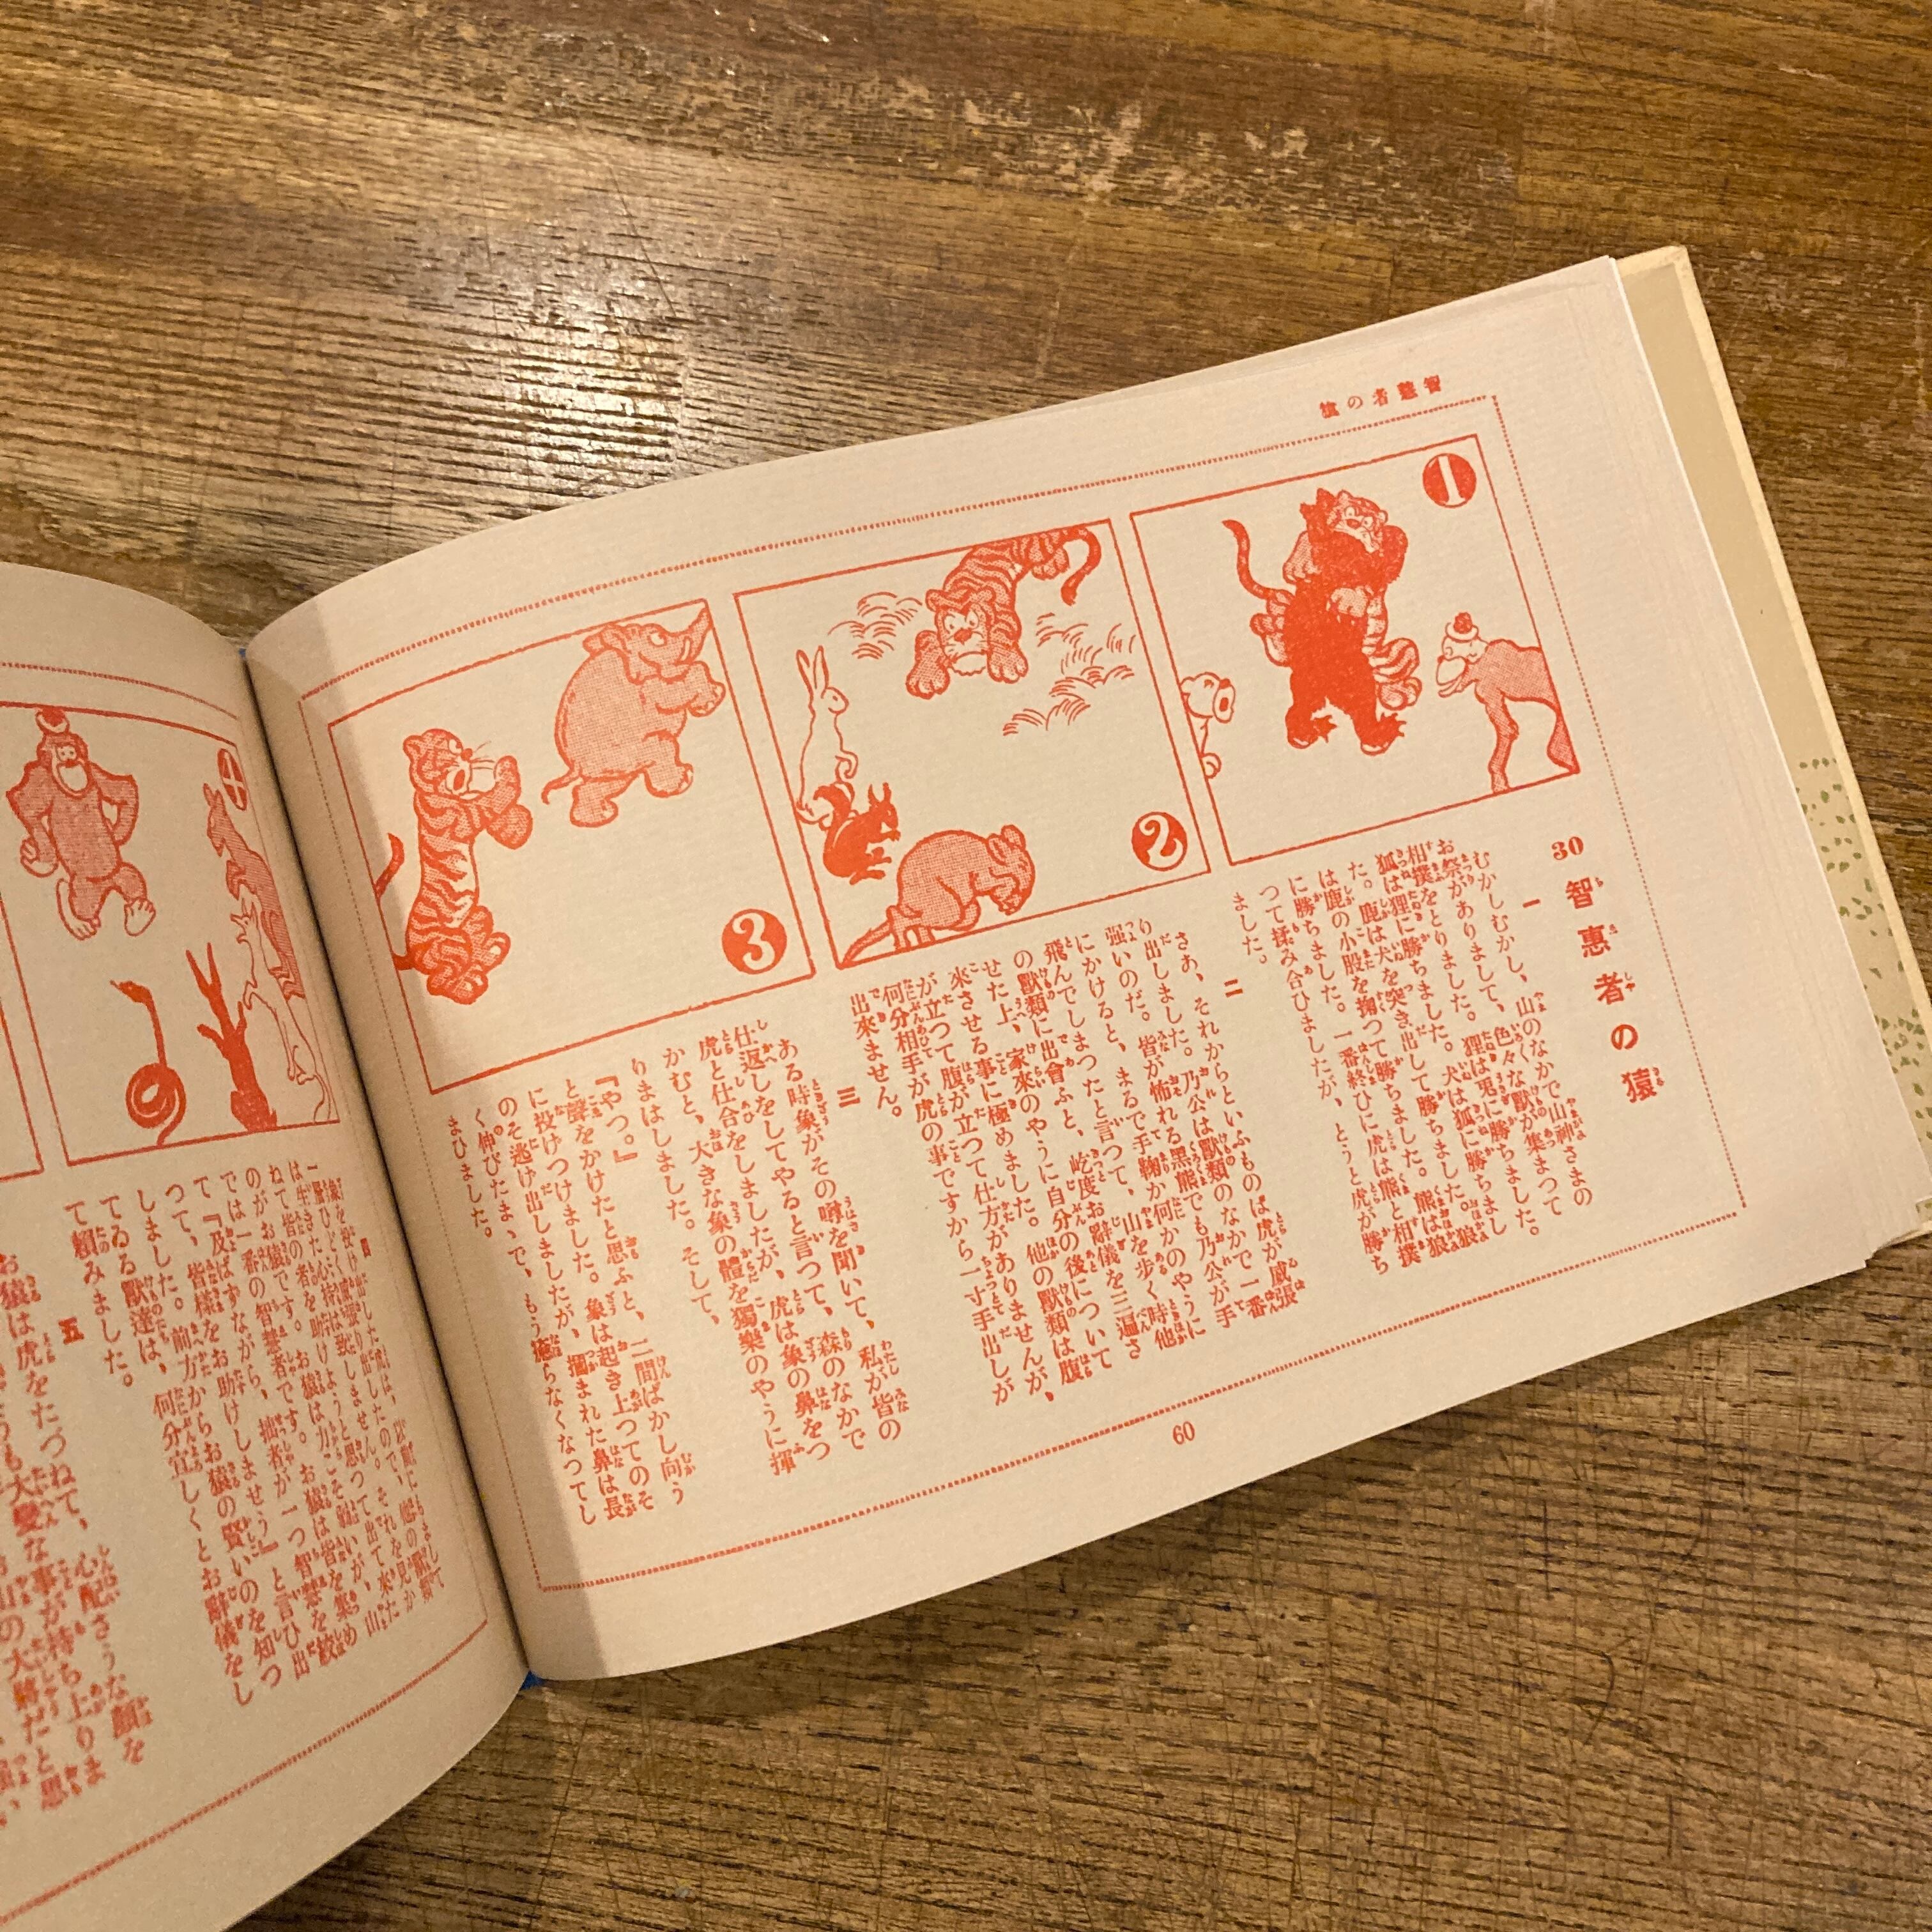 智慧者の猿
1
2
3
30 智惠者の猿
一
むかしむかし、山のなかで山神さまの
お祭がありまして、色々な獸が集まつて
相撲をとりました。狸は兎に勝ちました。
狐は狸に勝ちました。犬は狐に勝ちまし
た。鹿は犬を突き出して勝ちました。狼
は鹿の小股を掬つて勝ちました。熊は狼
に勝ちました。一番終ひに虎は熊と相撲
つて揉み合ひましたが、とうと虎が勝ち
ました。
二
さあ、それからといふものは虎が威張
り出しました。乃公は獸類のなかで一番
强いのだ。皆が怖れる黑熊でも乃公が手
にかけると、まるで手鞠か何かのやうに
飛んでしまつたと言つて、山を步く時他
の獸類に出會ふと、屹度お辭儀を三遍さ
せた上、家來のやうに自分の後について
來させる事に極めました。他の獸類は腹
が立つて腹が立つて仕方がありませんが、
何分相手が虎の事ですから一寸手出しが
出來ません。
三
ある時象がその噂を聞いて、私が皆の
仕返しをしてやると言つて、森のなかで
虎と仕合をしましたが、虎は象の鼻をつ
かむと、大きな象の體を獨樂のやうに揮
りまはしました。そして、
『やつ。』
と聲をかけたと思ふと、二間ばかし向う
に投げつけました。象は起き上つてのそ
のそ逃げ出しましたが、摑まれた鼻は長
く伸びたまゝで、もう癒らなくなつてし
まひました。
60
四
象を投げ出した虎は、以前にもまして
一層ひどく威張り出したので、他の獸類
は生きた心持は致しません。それを見か
ねて皆の者を助けようと思つて出て來た
のがお猿です。お猿は力こそ弱いが、山
では一番の智慧者です。お猿は皆を集め
て『及ばずながら、拙者が一つ智慧を絞
つて、皆樣をお助けしませう』と言ひ出
しました。前方からお猿の賢いのを知つ
てゐる獸達は、何分宜しくとお辭儀をし
て賴みました。
五
お猿は虎をたづねて、心配さうな顏を
も大變な事が持ち上りま
山の大將だと思